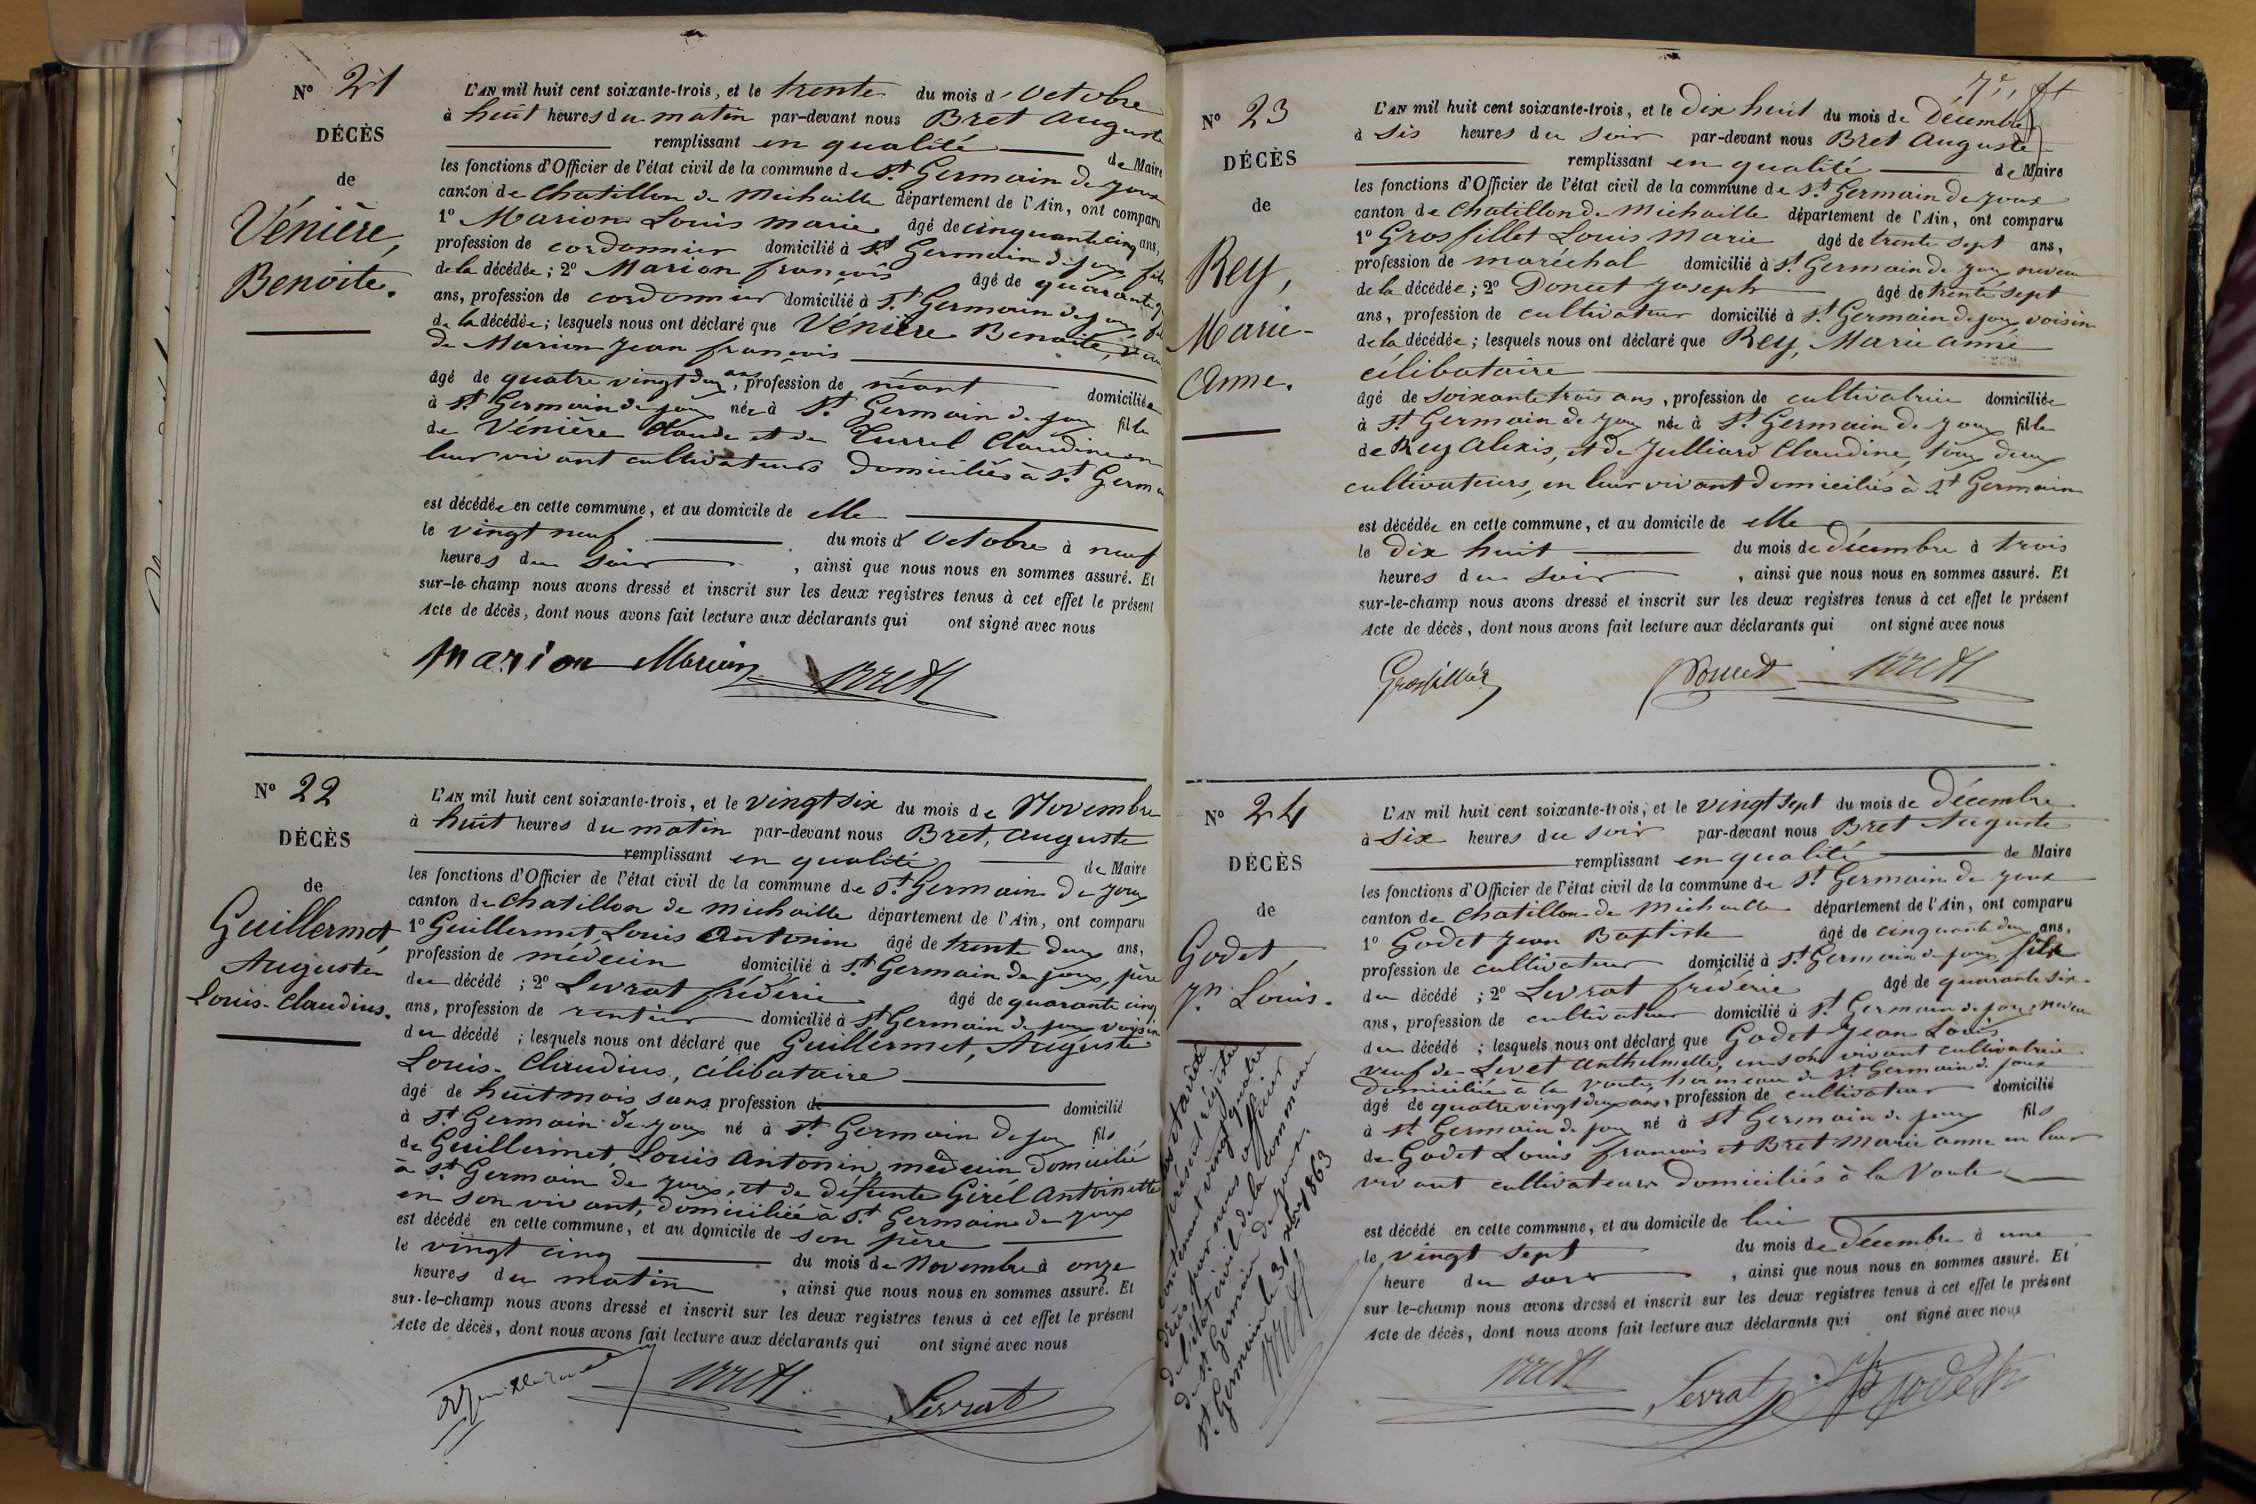 N° 21
DÉCÈS
de
Vénière,
Benoite.
L'AN mil huit cent soixante-trois, et le trente du mois d'Octobre
à huit heures du matin par-devant nous Bret Auguste
remplissant en qualité de Maire
les fonctions d'Officier de l'état civil de la commune de St Germain de Joux
canton de Chatillon de Michaille département de l'Ain, ont comparu
1° Marion Louis Marie âgé de cinquante cinq ans,
profession de cordonnier domicilié à St Germain de Joux fils
de la décédée; 2° Marion françois âgé de quarante
ans, profession de cordonnier domicilié à St Germain de Joux, fils
de la décédée; lesquels nous ont déclaré que Vénière Benoite,
de Marion Jean françois
âgé de quatre vingt deux ans, profession de néant domiciliée
à St Germain de Joux née à St Germain de Joux fille
de Vénière Claude et de Turrel Claudine en
leur vivant cultivateurs domiciliés à St Germain
est décédée en cette commune, et au domicile de elle
le vingt neuf du mois d'Octobre à neuf
heures du soir, ainsi que nous nous en sommes assuré. Et
sur-le-champ nous avons dressé et inscrit sur les deux registres tenus à cet effet le présent
Acte de décès, dont nous avons fait lecture aux déclarants qui ont signé avec nous
Marion Marion Bret
N° 22
DÉCÈS
de
Guillermet,
Auguste
Louis-Claudius.
L'AN mil huit cent soixante-trois, et le vingt six du mois de Novembre
à huit heures du matin par-devant nous Bret, Auguste
remplissant en qualité de Maire
les fonctions d'Officier de l'état civil de la commune de St Germain de Joux
canton de Chatillon de Michaille département de l'Ain, ont comparu
1° Guillermet Louis Antonin âgé de trente deux ans,
profession de médecin domicilié à St Germain de Joux, père
du décédé; 2° Levrat frédéric âgé de quarante cinq
ans, profession de rentier domicilié à St Germain de Joux voisin
du décédé; lesquels nous ont déclaré que Guillermet, Auguste
Louis-Claudius, célibataire
âgé de huit mois sans profession de domicilié
à St Germain de Joux né à St Germain de Joux fils
de Guillermet, Louis Antonin, médecin domicilié
à St Germain de Joux, et de défunte Girel Antoinette
en son vivant, domiciliée à St Germain de Joux
est décédé en cette commune, et au domicile de son père
le vingt cinq du mois de Novembre à onze
heures du matin, ainsi que nous nous en sommes assuré. Et
sur-le-champ nous avons dressé et inscrit sur les deux registres tenus à cet effet le présent
Acte de décès, dont nous avons fait lecture aux déclarants qui ont signé avec nous
Bret Levrat
N° 23
DÉCÈS
de
Rey,
Marie-
Anne.
L'AN mil huit cent soixante-trois, et le dix huit du mois de Décembre
à six heures du soir par-devant nous Bret Auguste
remplissant en qualité de Maire
les fonctions d'Officier de l'état civil de la commune de St Germain de Joux
canton de Chatillon de Michaille département de l'Ain, ont comparu
1° Grosfillet Louis Marie âgé de trente sept ans,
profession de maréchal domicilié à St Germain de Joux neveu
de la décédée; 2° Poncet Joseph âgé de trente sept
ans, profession de cultivateur domicilié à St Germain de Joux voisin
de la décédée; lesquels nous ont déclaré que Rey, Marie anne
célibataire
âgé de soixante trois ans, profession de cultivatrice domiciliée
à St Germain de Joux née à St Germain de Joux fille
de Rey Alexis, et de Julliard Claudine, tous deux
cultivateurs, en leur vivant domiciliés à St Germain
est décédée en cette commune, et au domicile de elle
le Dix huit du mois de décembre à trois
heures du soir, ainsi que nous nous en sommes assuré. Et
sur-le-champ nous avons dressé et inscrit sur les deux registres tenus à cet effet le présent
Acte de décès, dont nous avons fait lecture aux déclarants qui ont signé avec nous
Grosfillet Poncet Bret
N° 24
DÉCÈS
de
Godet,
Jn Louis.
L'AN mil huit cent soixante-trois, et le vingt sept du mois de Décembre
à six heures du soir par-devant nous Bret Auguste
remplissant en qualité de Maire
les fonctions d'Officier de l'état civil de la commune de St Germain de Joux
canton de Chatillon de Michaille département de l'Ain, ont comparu
1° Godet Jean Baptiste âgé de cinquante deux ans,
profession de cultivateur domicilié à St Germain de Joux fils
du décédé; 2° Levrat frédéric âgé de quarante six
ans, profession de cultivateur domicilié à St Germain de Joux, neveu
du décédé; lesquels nous ont déclaré que Godet Jean Louis
veuf de Levet Anthelmette, en son vivant cultivatrice
domiciliée à la Voute, hameau de St Germain de Joux
âgé de quatre vingt deux ans, profession de cultivateur domicilié
à St Germain de Joux né à St Germain de Joux fils
de Godet Louis françois et Bret Marie anne en leur
vivant cultivateurs domiciliés à la Voute
est décédé en cette commune, et au domicile de lui
le vingt sept du mois de décembre à une
heure du soir, ainsi que nous nous en sommes assuré. Et
sur-le-champ nous avons dressé et inscrit sur les deux registres tenus à cet effet le présent
Acte de décès, dont nous avons fait lecture aux déclarants qui ont signé avec nous
Bret Levrat Godet
arrêté
présent régistre
contenant vingt quatre
décès par nous officier
de l'état civil de la commune
de St Germain de Joux.
St Germain le 31 Xbre 1863
Bret